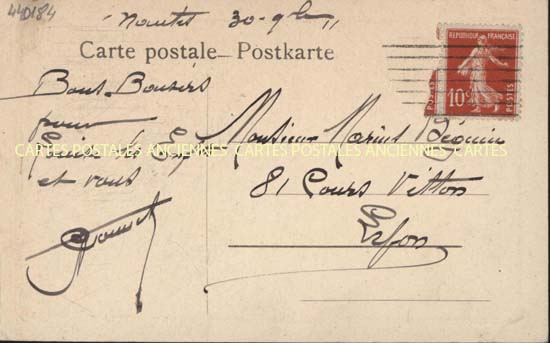 440184
Nantes 30-9bre 11
Carte postale – Postkarte
RÉPUBLIQUE FRANÇAISE
10c
POSTES
Bons Baisers
pour
et vous
Monsieur Marius Béguin
81 Cours Vitton
Lyon
CARTES POSTALES ANCIENNES CARTES POSTALES ANCIENNES CARTES